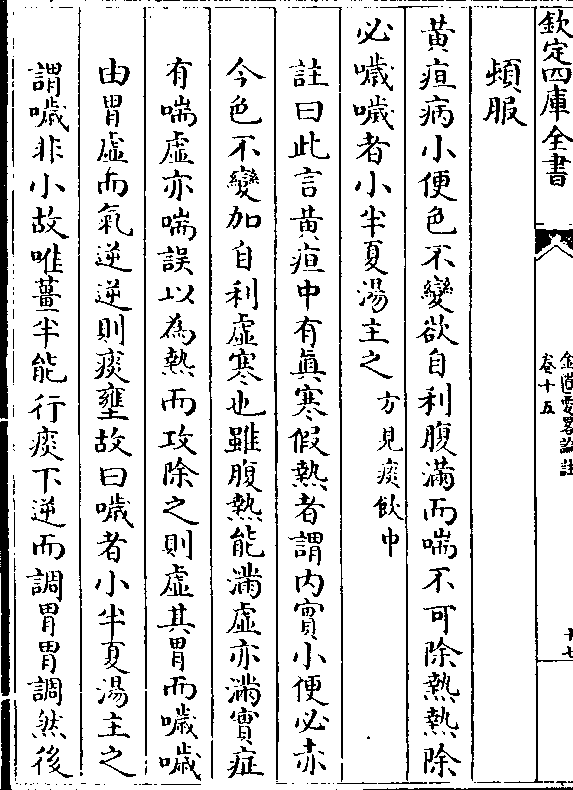 欽定四庫全書
金匱要畧論註
卷十五
十七
頓服
黃疸病小便色不變欲自利腹滿而喘不可除熱熱除
必噦噦者小半夏湯主之方見痰飲中
註曰此言黃疸中有真寒假熱者謂內實小便必赤
今色不變加自利虛寒也雖腹熱能滿虛亦滿實症
有喘虛亦喘誤以為熱而攻除之則虛其胃而噦噦
由胃虛而氣逆逆則痰壅故曰噦者小半夏湯主之
謂噦非小故唯薑半能行痰下逆而調胃胃調然後